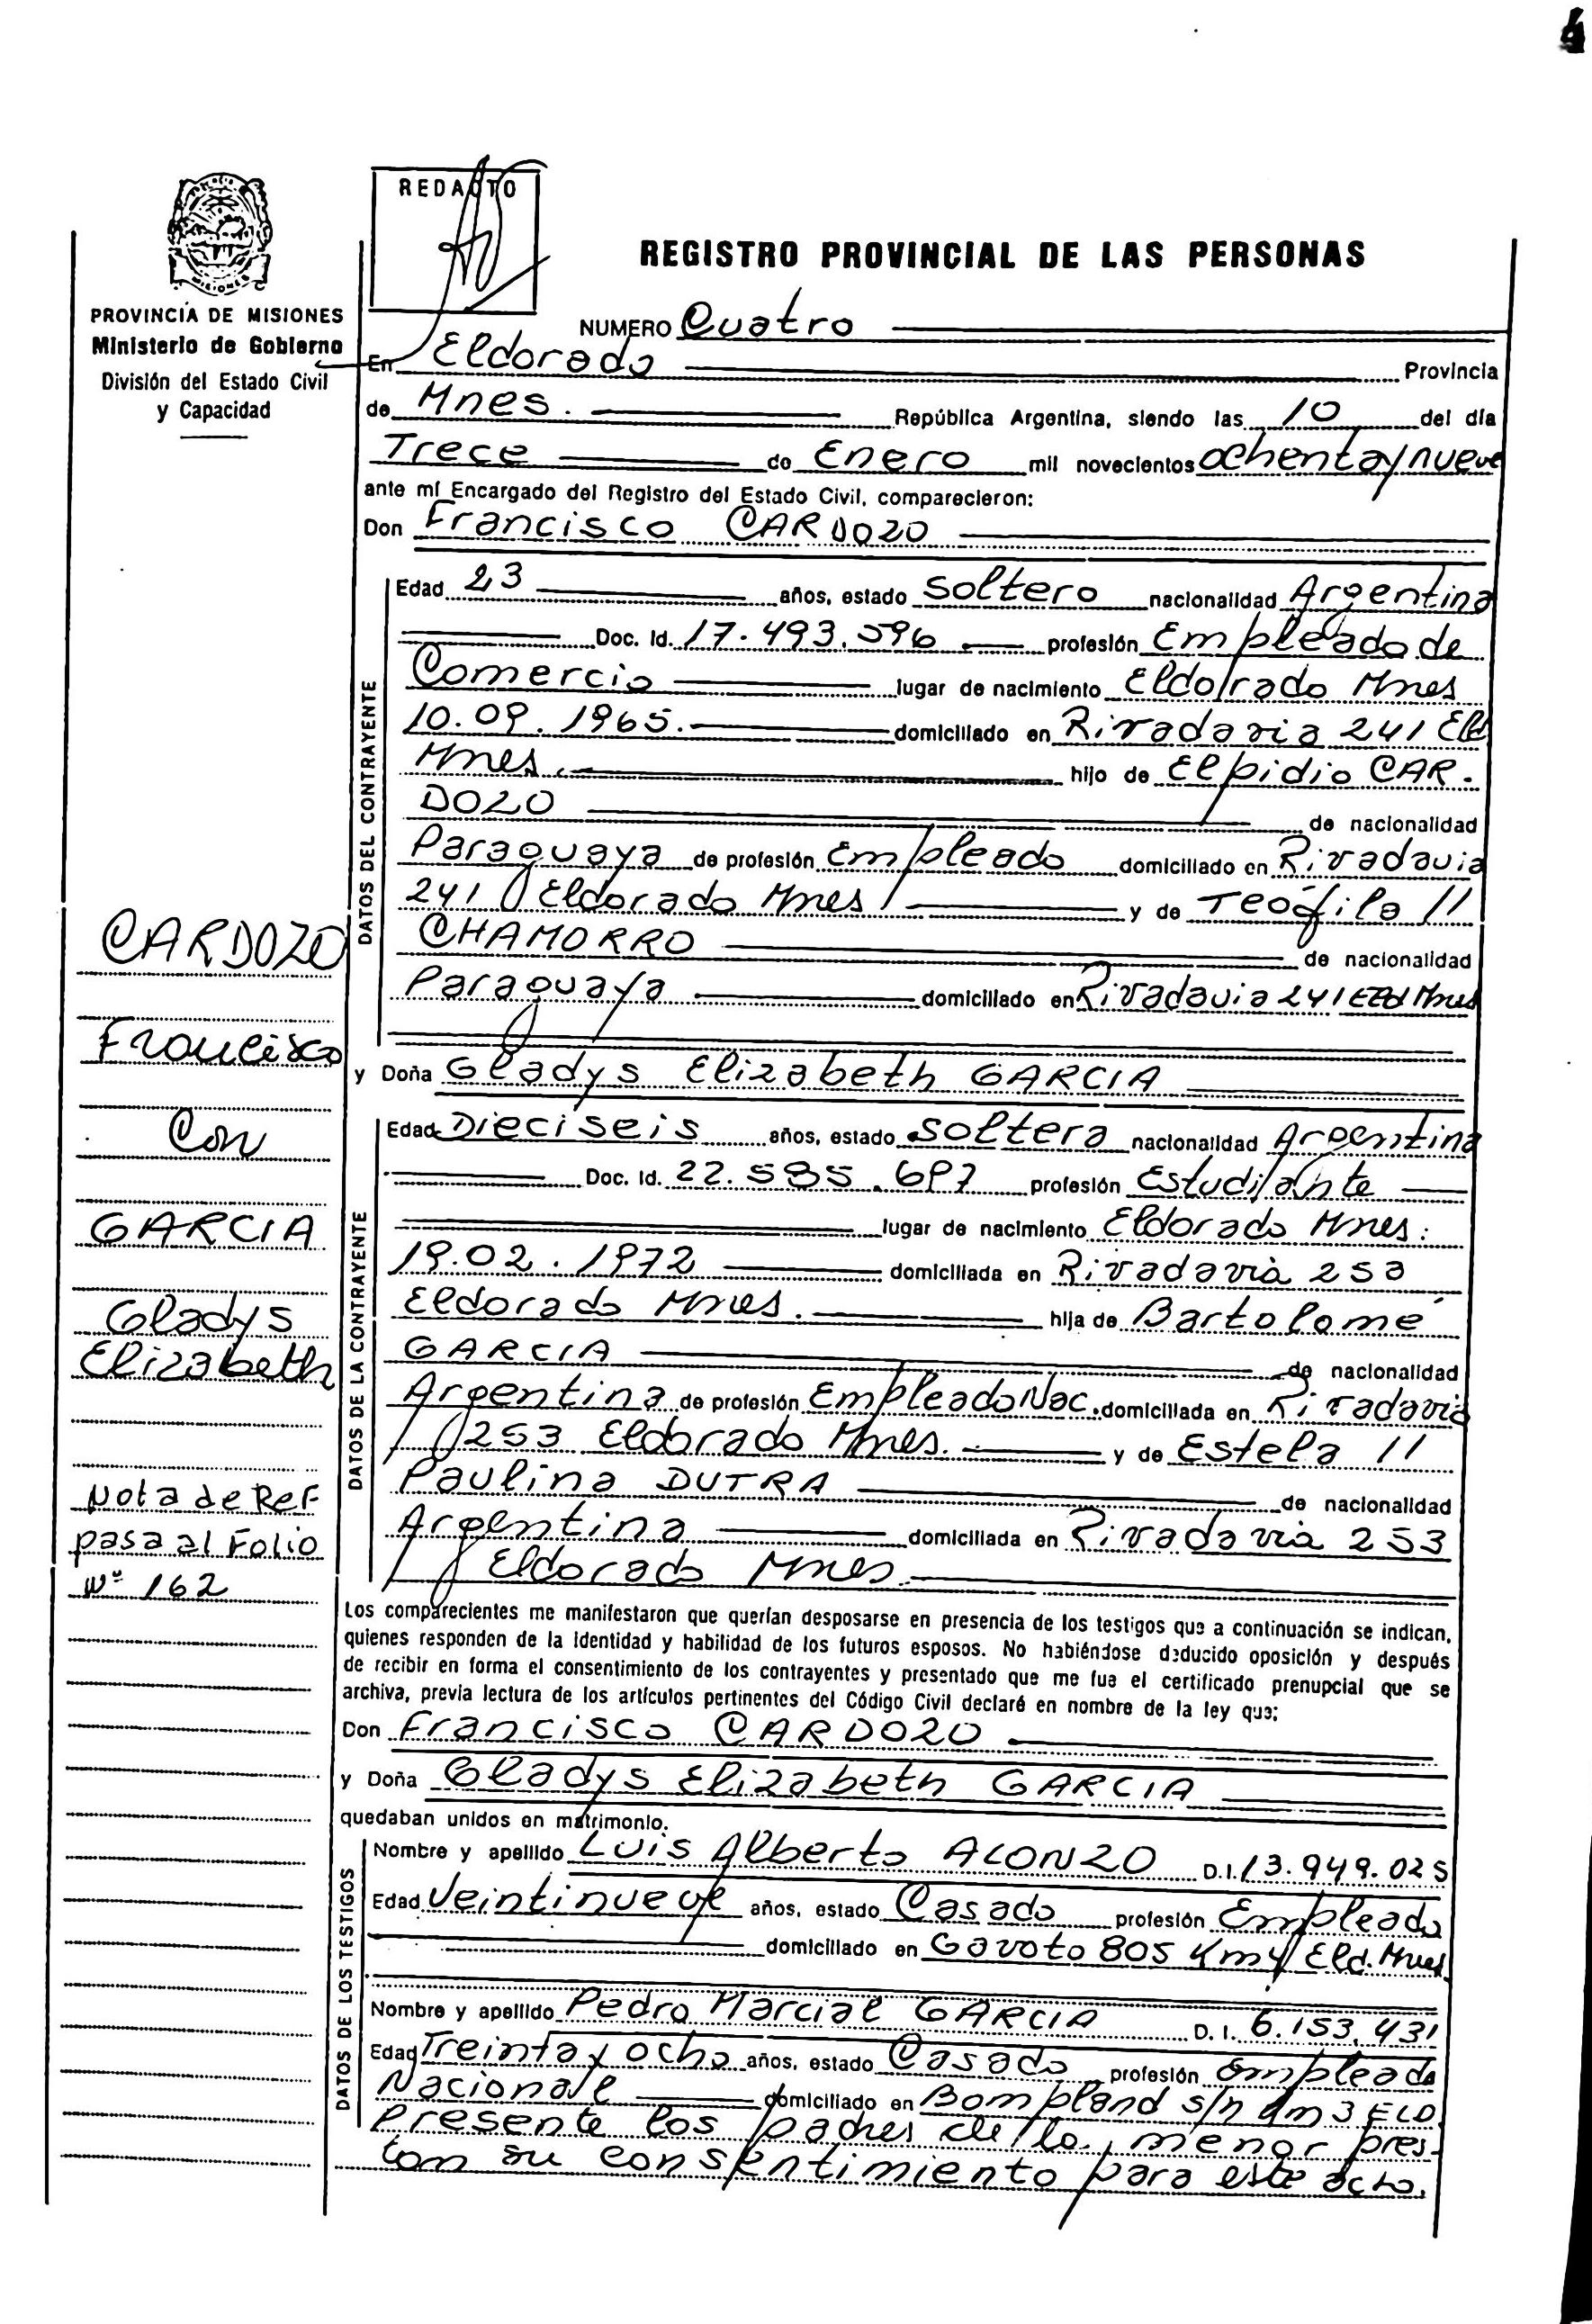 REDACTO
REGISTRO PROVINCIAL DE LAS PERSONAS
PROVINCIA DE MISIONES
Ministerio de Gobierno
División del Estado Civil
y Capacidad
NUMERO Cuatro
En Eldorado Provincia
de Mnes. República Argentina, siendo las 10 del día
Trece de Enero mil novecientos ochenta y nueve
ante mí Encargado del Registro del Estado Civil, comparecieron:
Don Francisco CARDOZO
DATOS DEL CONTRAYENTE
Edad 23 años, estado soltero nacionalidad Argentina
Doc. Id. 17.493.596 profesión Empleado de
Comercio lugar de nacimiento Eldorado Mnes
10.09.1965. domiciliado en Rivadavia 241 Eld
Mnes. hijo de Elpidio CAR-
DOZO de nacionalidad
Paraguaya de profesión Empleado domiciliado en Rivadavia
241 Eldorado Mnes y de Teófila //
CHAMORRO de nacionalidad
Paraguaya domiciliado en Rivadavia 241 Eld Mnes
y Doña Gladys Elizabeth GARCIA
DATOS DE LA CONTRAYENTE
Edad Dieciseis años, estado soltera nacionalidad Argentina
Doc. Id. profesión Estudiante
lugar de nacimiento Eldorado Mnes.
19.02.1972 domiciliada en Rivadavia 253
Eldorado Mnes. hija de Bartolomé
GARCIA de nacionalidad
Argentina de profesión Empleado Nac. domiciliada en Rivadavia
253 Eldorado Mnes. y de Estela //
Paulina DUTRA de nacionalidad
Argentina domiciliada en Rivadavia 253
Eldorado Mnes.
CARDOZO
Francisco
Con
GARCIA
Gladys
Elizabeth
Nota de Ref
pasa al Folio
Nº 162
Los comparecientes me manifestaron que querían desposarse en presencia de los testigos que a continuación se indican,
quienes responden de la identidad y habilidad de los futuros esposos. No habiéndose deducido oposición y después
de recibir en forma el consentimiento de los contrayentes y presentado que me fue el certificado prenupcial que se
archiva, previa lectura de los artículos pertinentes del Código Civil declaré en nombre de la ley que:
Don Francisco CARDOZO
y Doña Gladys Elizabeth GARCIA
quedaban unidos en matrimonio.
DATOS DE LOS TESTIGOS
Nombre y apellido Luis Alberto ALONZO D.I. 13.949.025
Edad Veintinueve años, estado Casado profesión Empleado
domiciliado en Gavoto 805 Km 4 Eld. Mnes
Nombre y apellido Pedro Marcial GARCIA D. I. 6.153.431
Edad Treinta y ocho años, estado Casado profesión Empleado
Nacional domiciliado en Bompland s/n Km 3 ELD.
Presente los padres de la menor pres-
tan su consentimiento para este acto.